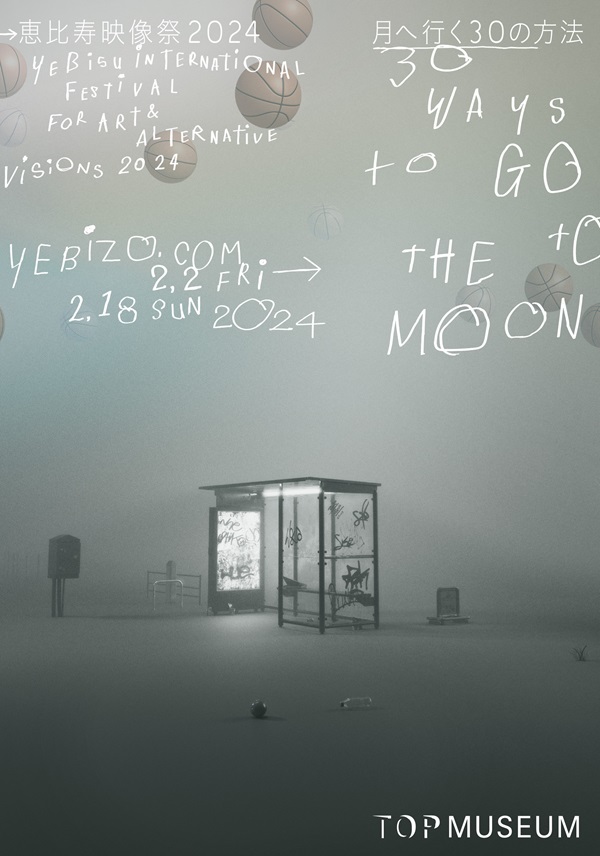 →恵比寿映像祭2024
YEBiSU iNTERNATiONAL
FESTiVAL
FOR ARt &
ALTERNATiVE
ViSiONS 2024
月へ行く30の方法
30
WAYS
to GO
to
tHE
MOON
YEBiZO.COM
2,2 FRi →
2,18 SUN 2024
TOPMUSEUM